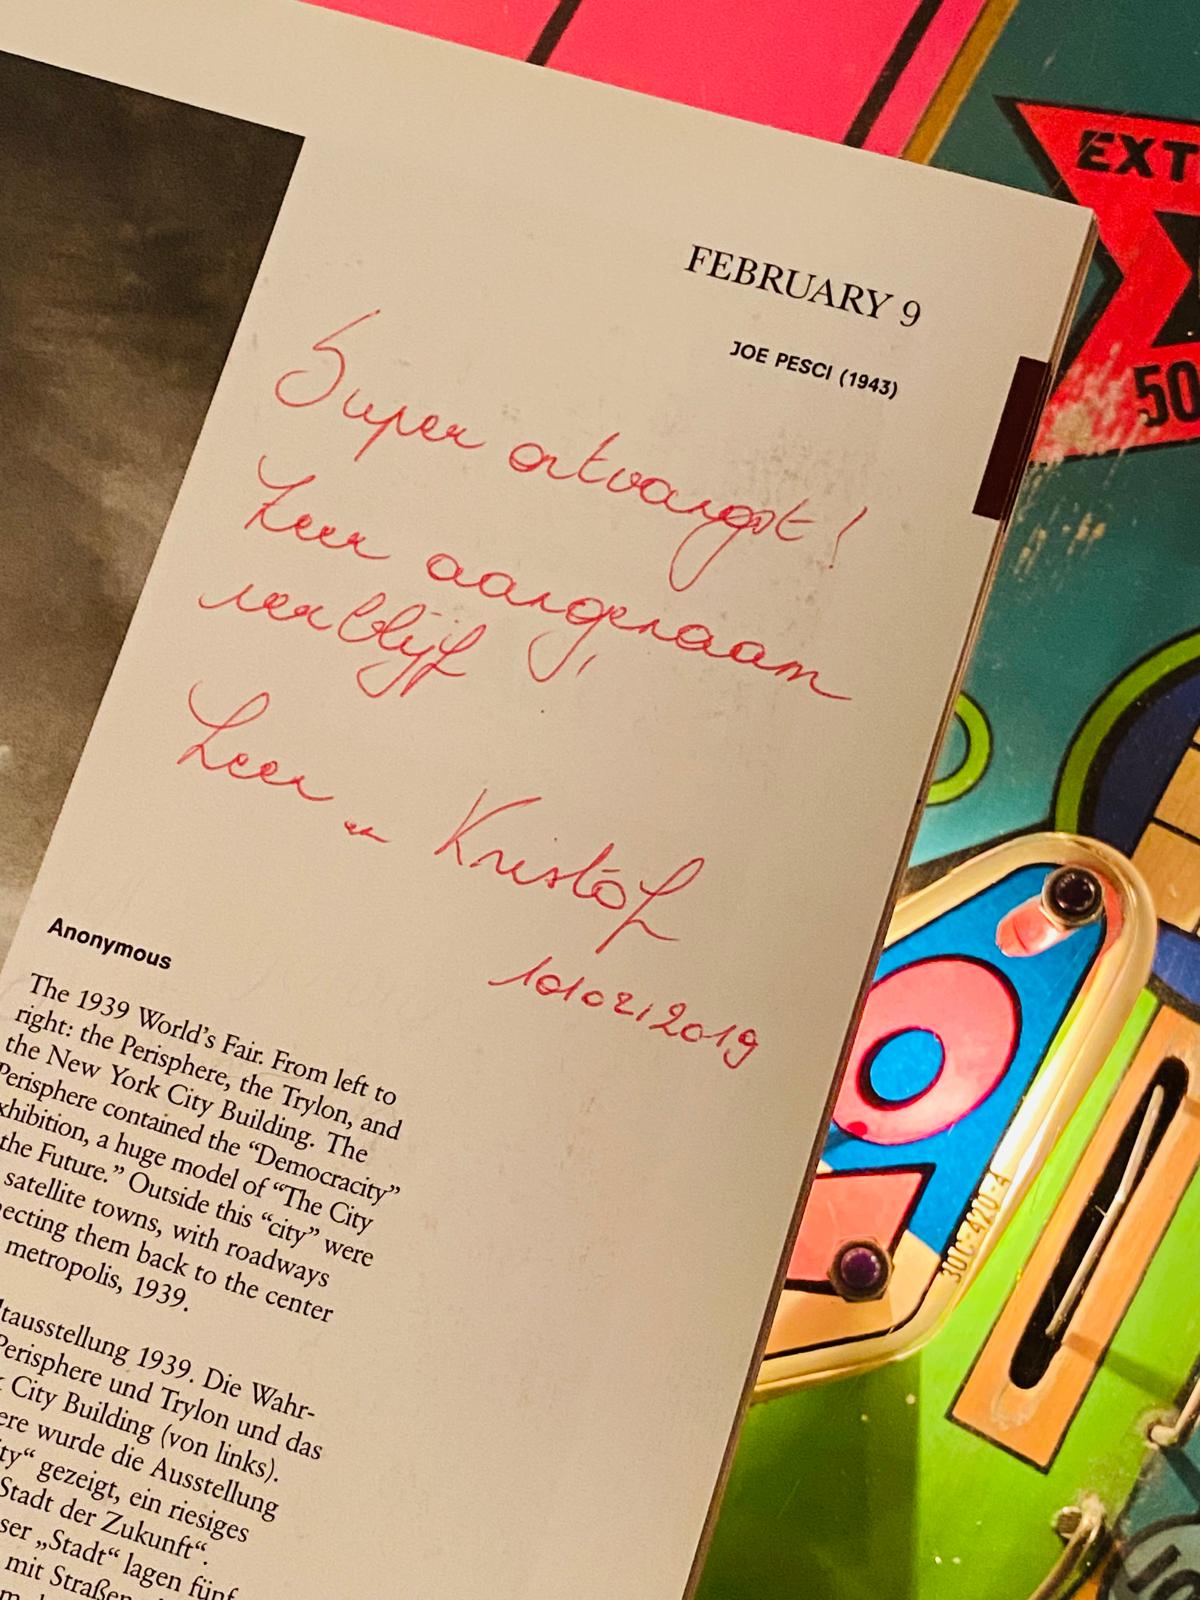 FEBRUARY 9
JOE PESCI (1943)
Super ontvangst!
Zeer aangenaam
verblijf,
en Kristof
10/02/2019
Anonymous
The 1939 World's Fair. From left to
right: the Perisphere, the Trylon, and
the New York City Building. The
Perisphere contained the “Democracity”
xhibition, a huge model of “The City
the Future.” Outside this “city” were
satellite towns, with roadways
ecting them back to the center
metropolis, 1939.
ltausstellung 1939. Die Wahr-
Perisphere und Trylon und das
City Building (von links).
ere wurde die Ausstellung
ty“ gezeigt, ein riesiges
Stadt der Zukunft“.
ser „Stadt“ lagen fünf
mit Straßen
EXT
50
30IC-420-4